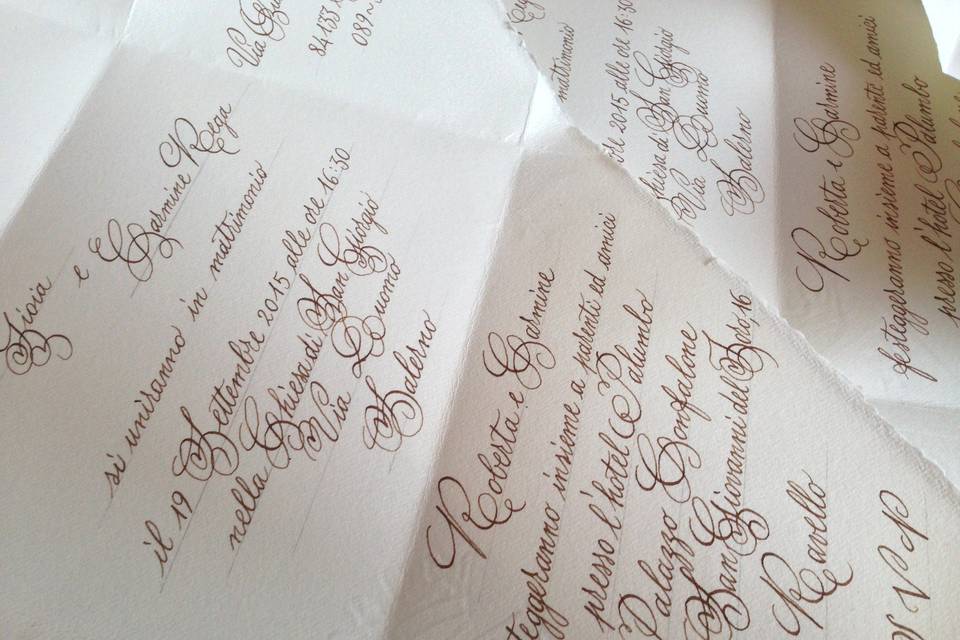 Via
84133
089
Gioia
e Carmine Rega
si uniranno in matrimonio
il 19 Settembre 2015 alle ore 16:30
nella Chiesa di San Giorgio
Via Duomo
Salerno
Roberta e Carmine
festeggeranno insieme a parenti ed amici
presso l'hotel Palumbo
Palazzo Gonfalone
San Giovanni del Toro, 16
Ravello
V P
matrimonio
2015 alle ore 16:30
Chiesa di San Giorgio
Via Duomo
Salerno
Roberta e Carmine
festeggeranno insieme a parenti ed amici
presso l'hotel Palumbo